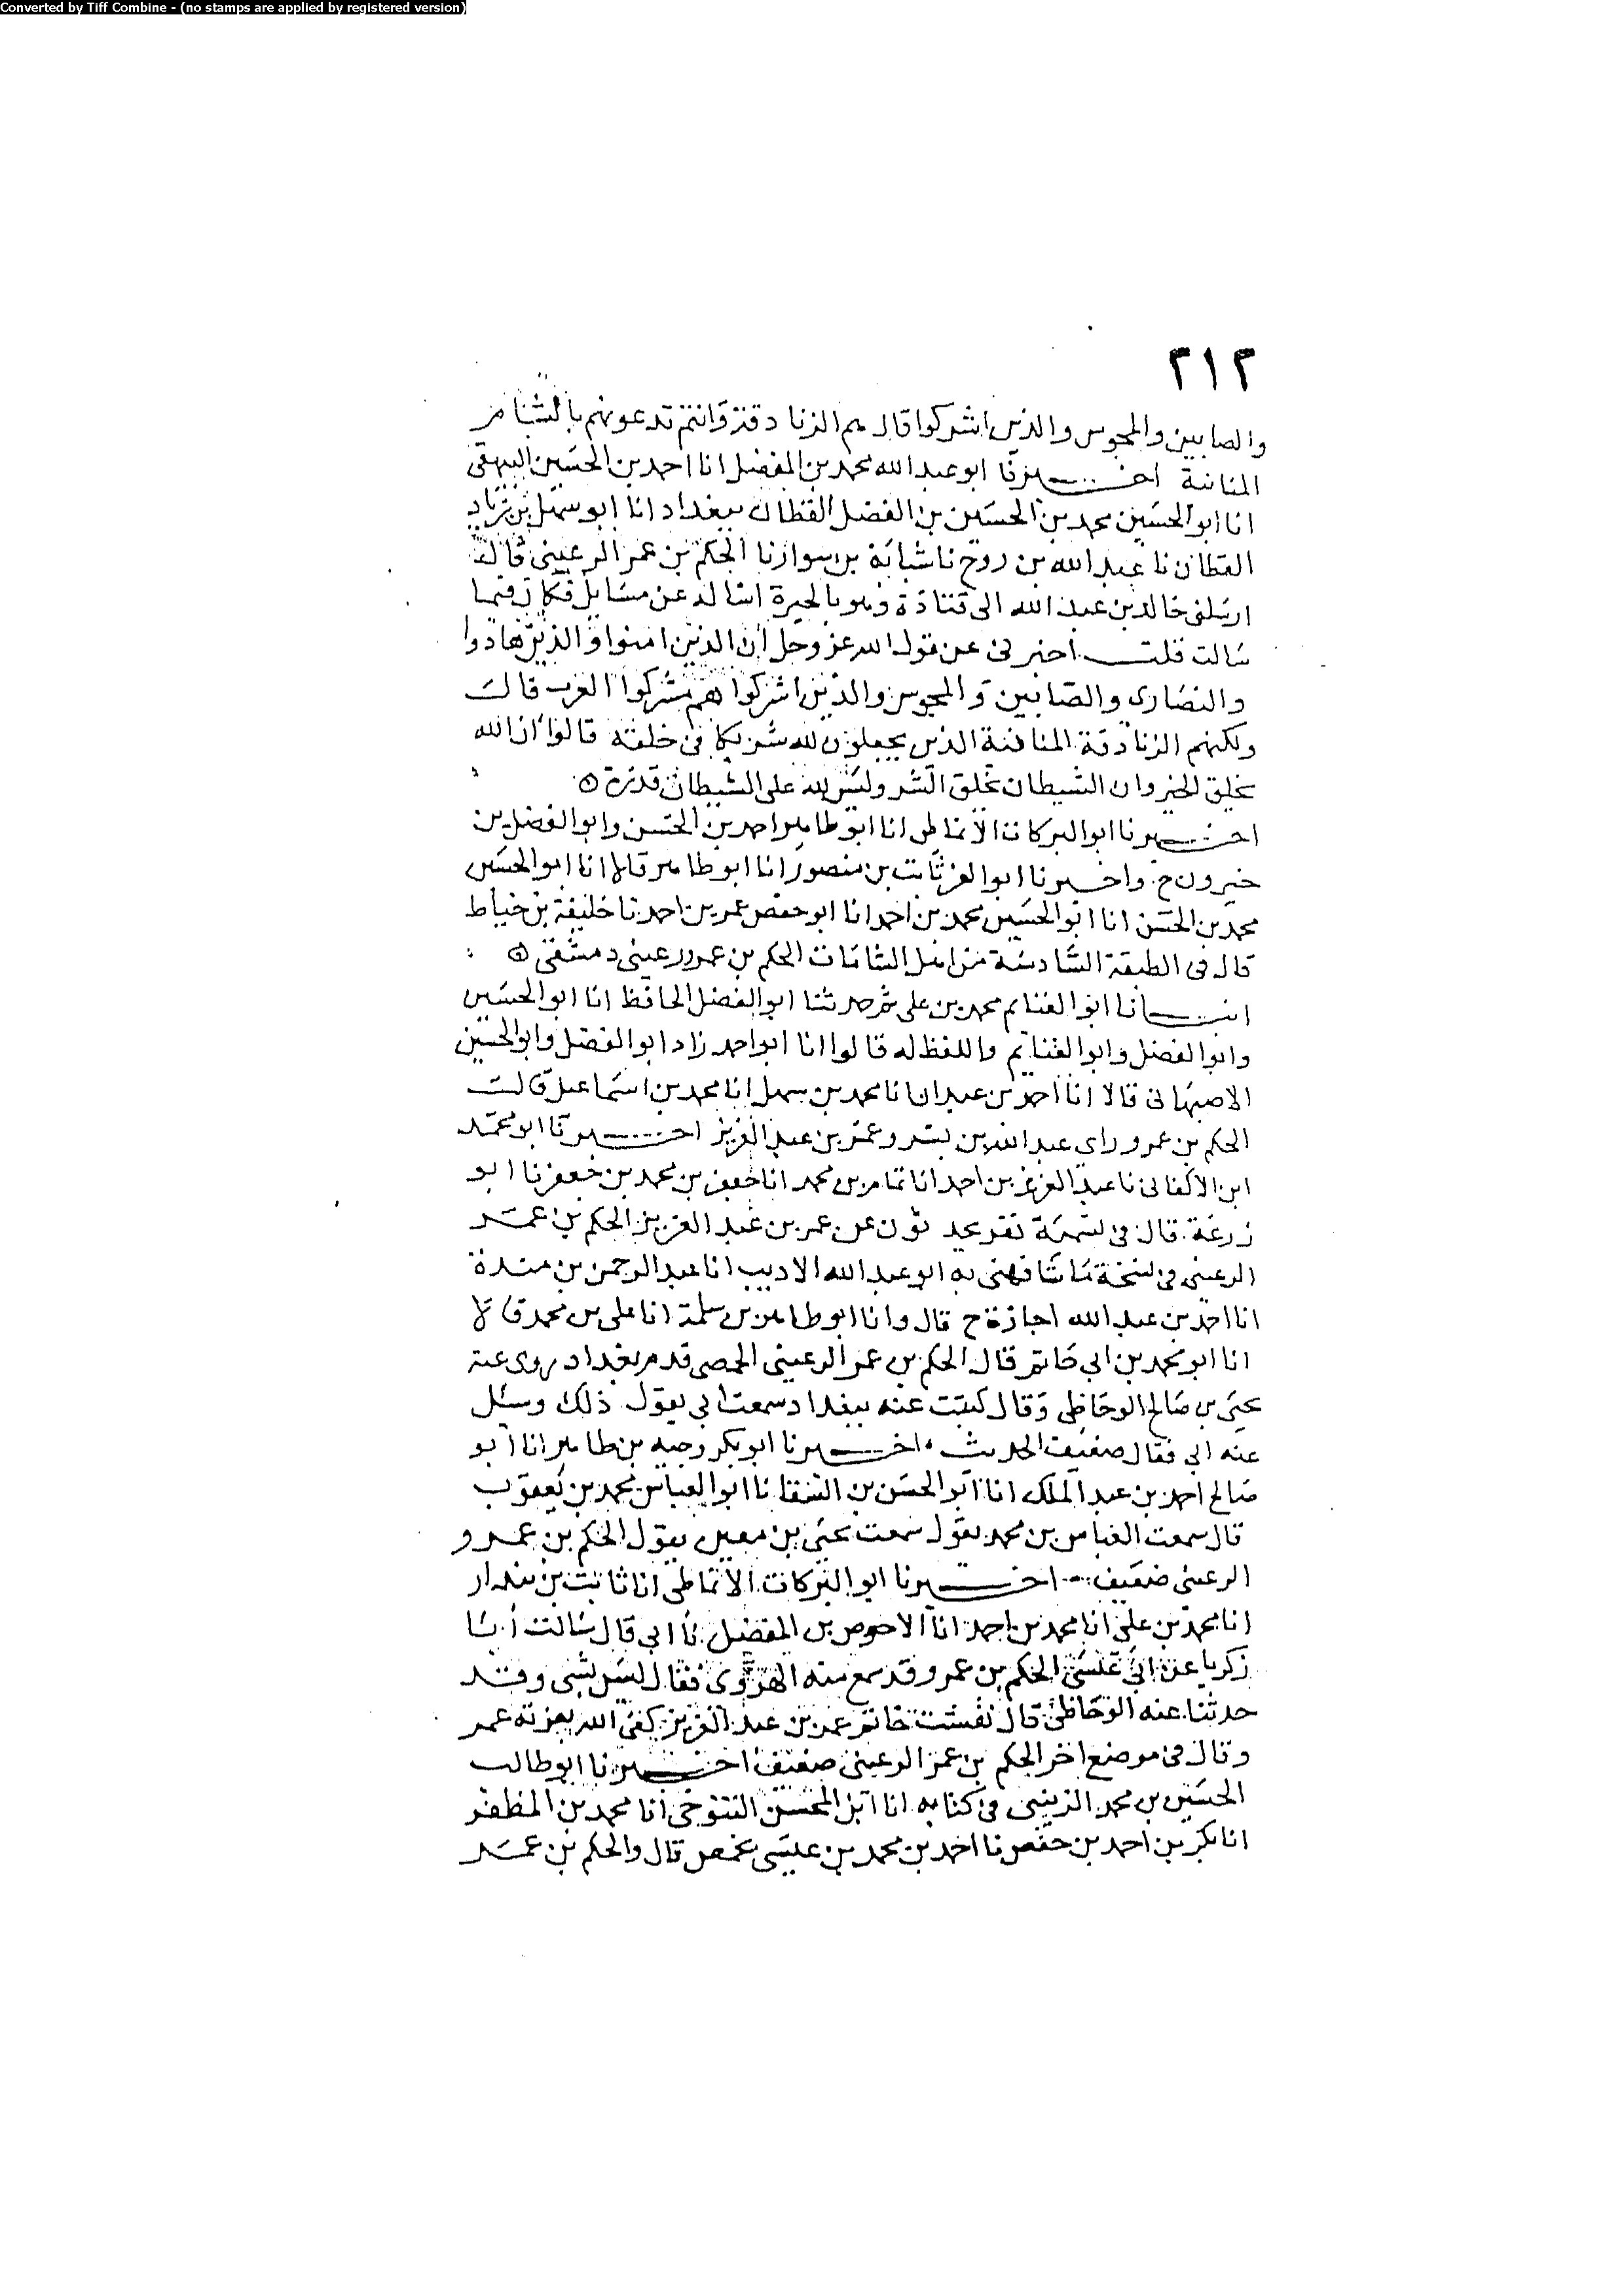 Converted by Tiff Combine - (no stamps are applied by registered version)
٢١٢
والصابين والمجوس والذين اشركوا قال هم الزنادقة وانتم تدعونهم بالشام
المنانية اخبرنا ابو عبد الله محمد بن المفضل انا احمد بن الحسين البيهقى
انا ابو الحسين محمد بن الحسين بن الفضل القطان ببغداد انا ابو سهل بن زياد
القطان نا عبد الله بن روح نا شبابة بن سوار نا الحكم بن عمر الرعينى قال
ارسلنى خالد بن عبد الله الى قتادة وهو بالحيرة اساله عن مسايل فكان فيما
سالت قلت اخبرنى عن قول الله عز وجل ان الذين امنوا والذين هادوا
والنصارى والصابين والمجوس والذين اشركوا هم مشركوا العرب قال
ولكنهم الزنادقة المنانية الذين يجعلون لله شريكا فى خلقه قالوا ان الله
يخلق الخير وان الشيطان يخلق الشر وليس لله على الشيطان قدرة
اخبرنا ابو البركات الانماطى انا ابو طاهر احمد بن الحسن وابو الفضل بن
خيرون ح واخبرنا ابو العز ثابت بن منصور انا ابو طاهر قالا انا ابو الحسين
محمد بن الحسن انا ابو الحسين محمد بن احمد انا ابو حفص عمر بن احمد نا خليفة بن خياط
قال فى الطبقة السادسة من اهل الشامات الحكم بن عمرو رعينى دمشقى
انبانا ابو الغنايم محمد بن على ثم حدثنا ابو الفضل الحافظ انا ابو الحسين
وابو الفضل وابو الغنايم واللفظ له قالوا انا ابو احمد زاد ابو الفضل وابو الحسين
الاصبهانى قالا انا احمد بن عبدان انا محمد بن سهل انا محمد بن اسماعيل قال
الحكم بن عمرو راى عبد الله بن بسر وعمر بن عبد العزيز اخبرنا ابو محمد
ابن الاكفانى نا عبد العزيز بن احمد انا تمام بن محمد انا جعفر بن محمد بن جعفر نا ابو
زرعة قال فى تسمية نفر يحدثون عن عمر بن عبد العزيز الحكم بن عمر
الرعينى فى نسخة ما شافهنى به ابو عبد الله الاديب انا عبد الرحمن بن مندة
انا احمد بن عبد الله اجازة ح قال وانا ابو طاهر بن سلمة انا على بن محمد قالا
انا ابو محمد بن ابى حاتم قال الحكم بن عمر الرعينى الحمصى قدم بغداد روى عنه
يحيى بن صالح الوحاظى وقال كتبت عنه ببغداد سمعت ابى يقول ذلك وسئل
عنه ابى فقال ضعيف الحديث اخبرنا ابو بكر وجيه بن طاهر انا ابو
صالح احمد بن عبد الملك انا ابو الحسن بن السقا نا ابو العباس محمد بن يعقوب
قال سمعت العباس بن محمد يقول سمعت يحيى بن معين يقول الحكم بن عمرو
الرعينى ضعيف اخبرنا ابو البركات الانماطى انا ثابت بن بندار
انا محمد بن على انا محمد بن احمد انا الاحوص بن المفضل نا ابى قال سالت ابا
زكريا عن ابى عيسى الحكم بن عمرو قد سمع منه الهروى فقال ليس بشى وقد
حدثنا عنه الوحاظى قال نقشت خاتم عمر بن عبد العزيز كفى الله بعزته عمر
وقال فى موضع اخر الحكم بن عمر الرعينى ضعيف اخبرنا ابو طالب
الحسين بن محمد الزينبى فى كتابه انا ابو المحسن التنوخى انا محمد بن المظفر
انا بكر بن احمد بن حفص نا احمد بن محمد بن عيسى بحمص قال والحكم بن عمر